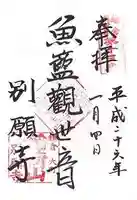 奉拝
平成二十六年
一月四日
魚藍観世音
別願寺